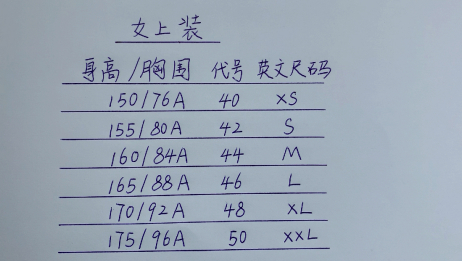 女上装
身高/胸围 代号 英文尺码
150/76A 40 XS
155/80A 42 S
160/84A 44 M
165/88A 46 L
170/92A 48 XL
175/96A 50 XXL